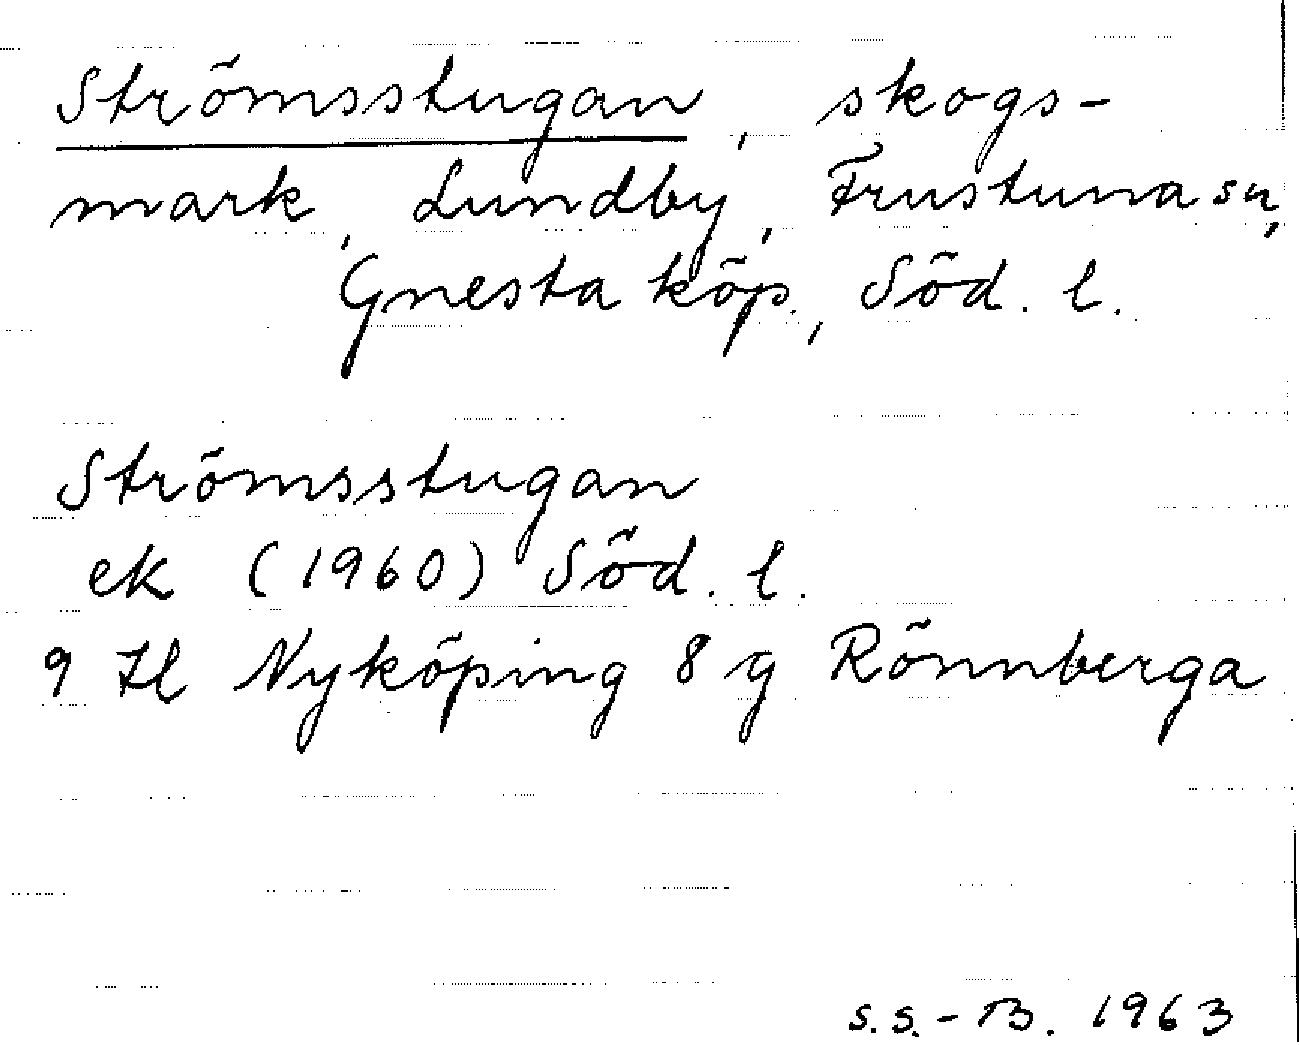 Strömsstugan, skogs-
mark, Lundby, Frustuna sn,
Gnesta köp., Söd. l.
Strömsstugan
ek (1960) Söd. l.
9 H Nyköping 8 g Rönnberga
S.S.-B. 1963